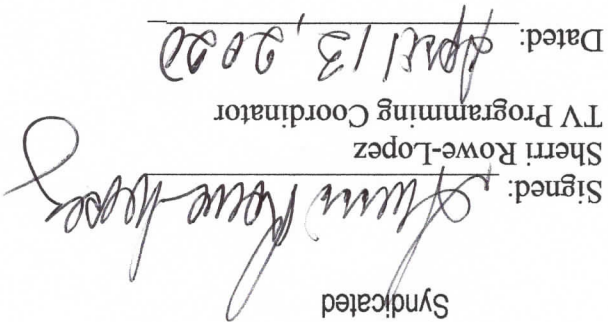 Syndicated
Signed: Sherri Rowe-Lopez
Sherri Rowe-Lopez
TV Programming Coordinator
Dated: April 13, 2020